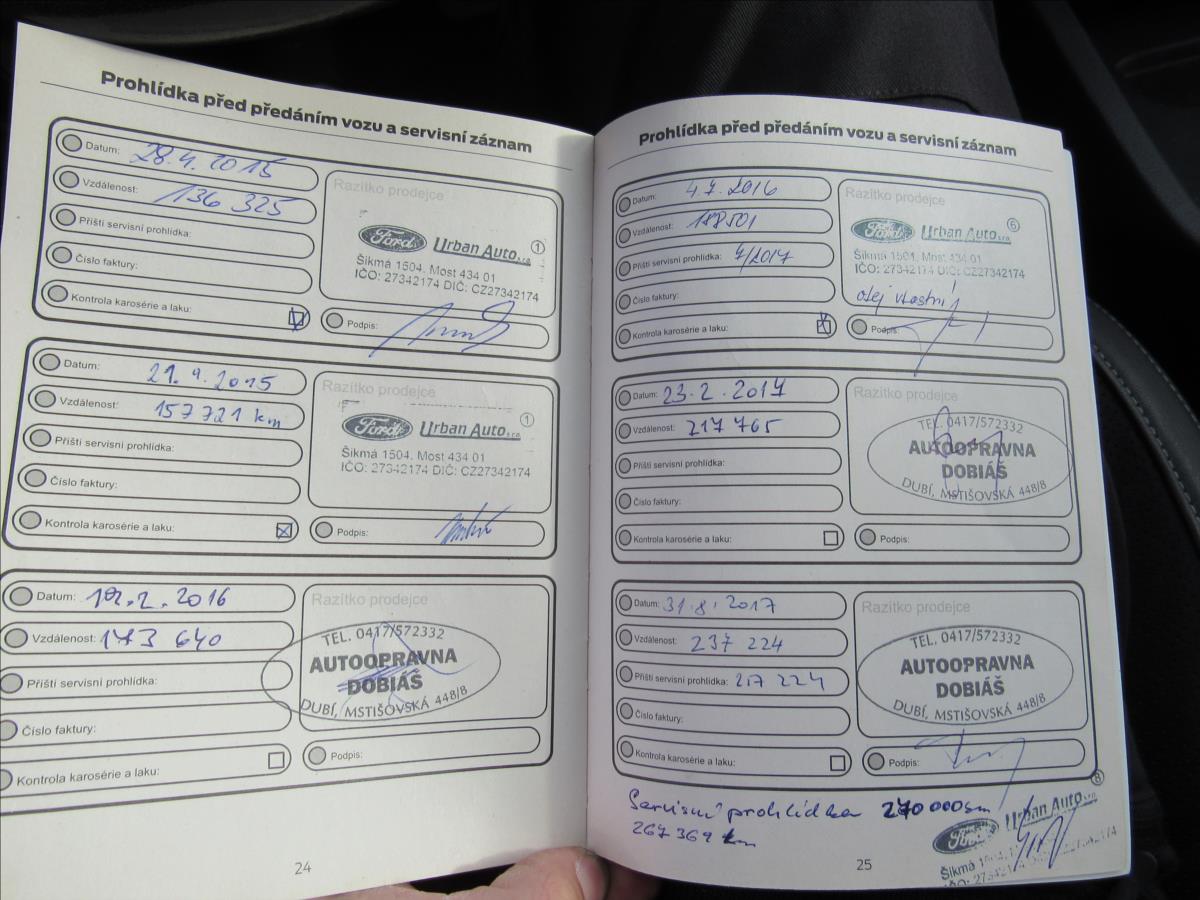 Prohlídka před předáním vozu a servisní záznam
Datum: 28.4.2015
Vzdálenost: 136 325
Příští servisní prohlídka:
Číslo faktury:
Kontrola karosérie a laku:
Razítko prodejce
Ford Urban Auto s.r.o. 1
Šikmá 1504, Most 434 01
IČO: 27342174 DIČ: CZ27342174
Podpis:
Datum: 21.9.2015
Vzdálenost: 157 721 km
Příští servisní prohlídka:
Číslo faktury:
Kontrola karosérie a laku:
Razítko prodejce
Ford Urban Auto s.r.o. 1
Šikmá 1504, Most 434 01
IČO: 27342174 DIČ: CZ27342174
Podpis:
Datum: 2.2016
Vzdálenost: 173 640
Příští servisní prohlídka:
Číslo faktury:
Kontrola karosérie a laku:
Razítko prodejce
TEL. 0417/572332
AUTOOPRAVNA
DOBIÁŠ
DUBÍ, MSTIŠOVSKÁ 448/8
Podpis:
24
Prohlídka před předáním vozu a servisní záznam
Datum: 4.7.2016
Vzdálenost: 188501
Příští servisní prohlídka: 7/2017
Číslo faktury:
Kontrola karosérie a laku:
Razítko prodejce
Ford Urban Auto s.r.o. 6
Šikmá 1504, Most 434 01
IČO: 27342174 DIČ: CZ27342174
olej vlastní
Podpis:
Datum: 23.2.2017
Vzdálenost: 217 765
Příští servisní prohlídka:
Číslo faktury:
Kontrola karosérie a laku:
TEL. 0417/572332
AUTOOPRAVNA
DOBIÁŠ
DUBÍ, MSTIŠOVSKÁ 448/8
Podpis:
Datum: 31.8.2017
Vzdálenost: 237 224
Příští servisní prohlídka: 257 224
Číslo faktury:
Kontrola karosérie a laku:
Razítko prodejce
TEL. 0417/572332
AUTOOPRAVNA
DOBIÁŠ
DUBÍ, MSTIŠOVSKÁ 448/8
Podpis:
Servisní prohlídka 270 000 km
267 369 km
Ford Urban Auto s.r.o. 8
Šikmá
IČO:
25